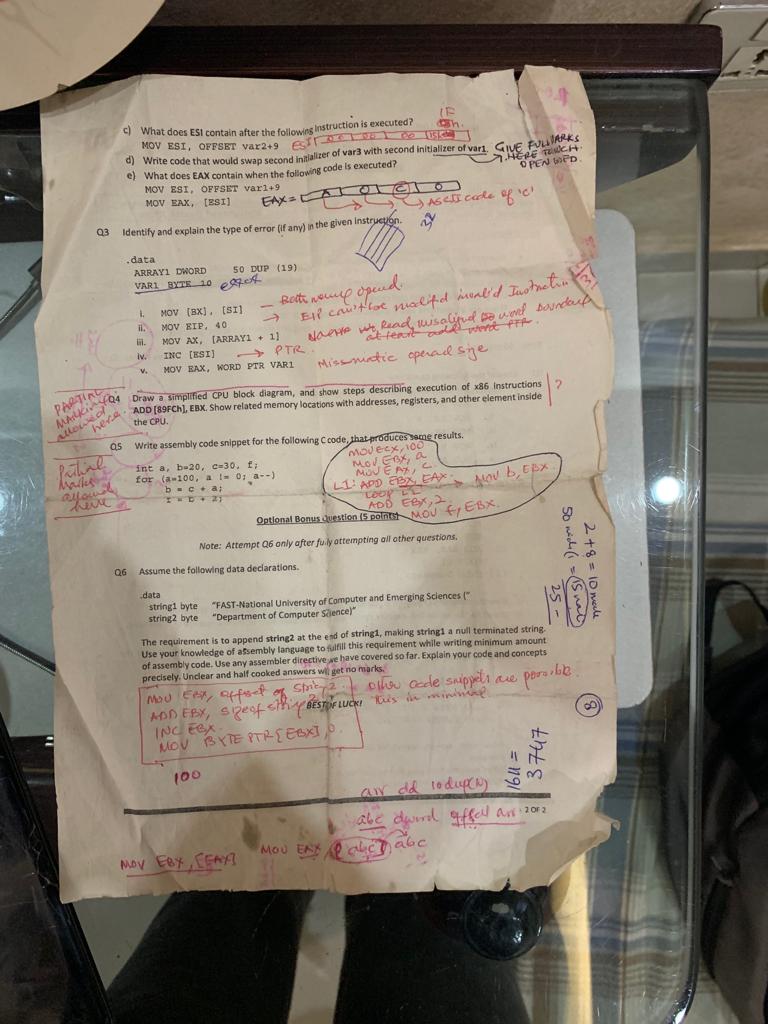 c) What does ESI contain after the following Instruction is executed?
1F
MOV ESI, OFFSET var2+9
ESI 00 00 00
d) Write code that would swap second initializer of var3 with second initializer of var1.
GIVE FULL MARKS
HERE TO WHICH
OPENED.
e) What does EAX contain when the following code is executed?
MOV ESI, OFFSET var1+9
MOV EAX, [ESI]
EAX = A 0 C 0
ASCII code of 'c'
Q3 Identify and explain the type of error (if any) in the given Instruction.
.data
ARRAY1 DWORD 50 DUP (19)
VAR1 BYTE 10 error
i. MOV [BX], [SI] Both memory operand.
ii. MOV EIP, 40 → EIP can't be modified invalid Instruction
iii. MOV AX, [ARRAY1 + 1] we Read misalined word boundary
at least add word PTR.
iv. INC [ESI] → PTR
v. MOV EAX, WORD PTR VAR1 Missmatic operad size
PARTIAL
MARKING
allowed
here.
Q4 Draw a simplified CPU block diagram, and show steps describing execution of x86 Instructions
ADD [89FCh], EBX. Show related memory locations with addresses, registers, and other element inside
the CPU.
?
Q5 Write assembly code snippet for the following C code, that produces same results.
Partial
Marks
allowed
here
int a, b=20, c=30, f;
for (a=100, a != 0; a--)
b = c + a;
f = b + 2;
MOV ECX, 100
MOV EBX, a
MOV EAX, c
L1: ADD EBX, EAX → MOV b, EBX
LOOP L1
ADD EBX, 2
MOV f, EBX.
Optional Bonus Question (5 points)
Note: Attempt Q6 only after fully attempting all other questions.
2 + 8 = 10 made
= 15
25 -
Q6 Assume the following data declarations.
.data
string1 byte "FAST-National University of Computer and Emerging Sciences ("
string2 byte "Department of Computer Science)"
The requirement is to append string2 at the end of string1, making string1 a null terminated string.
Use your knowledge of assembly language to fulfill this requirement while writing minimum amount
of assembly code. Use any assembler directive we have covered so far. Explain your code and concepts
precisely. Unclear and half cooked answers will get no marks.
MOV EBX, offset of string 2
ADD EBX, sizeof string 2
INC EBX.
MOV BYTE PTR [EBX], 0
other code snippets are possible.
this in minimal
BEST OF LUCK!
8
1611 =
3747
100
arr dd 10 dup(N)
abc dword offset arr
2 OF 2
MOV EBX, [EAX]
MOV EAX, [abc] abc